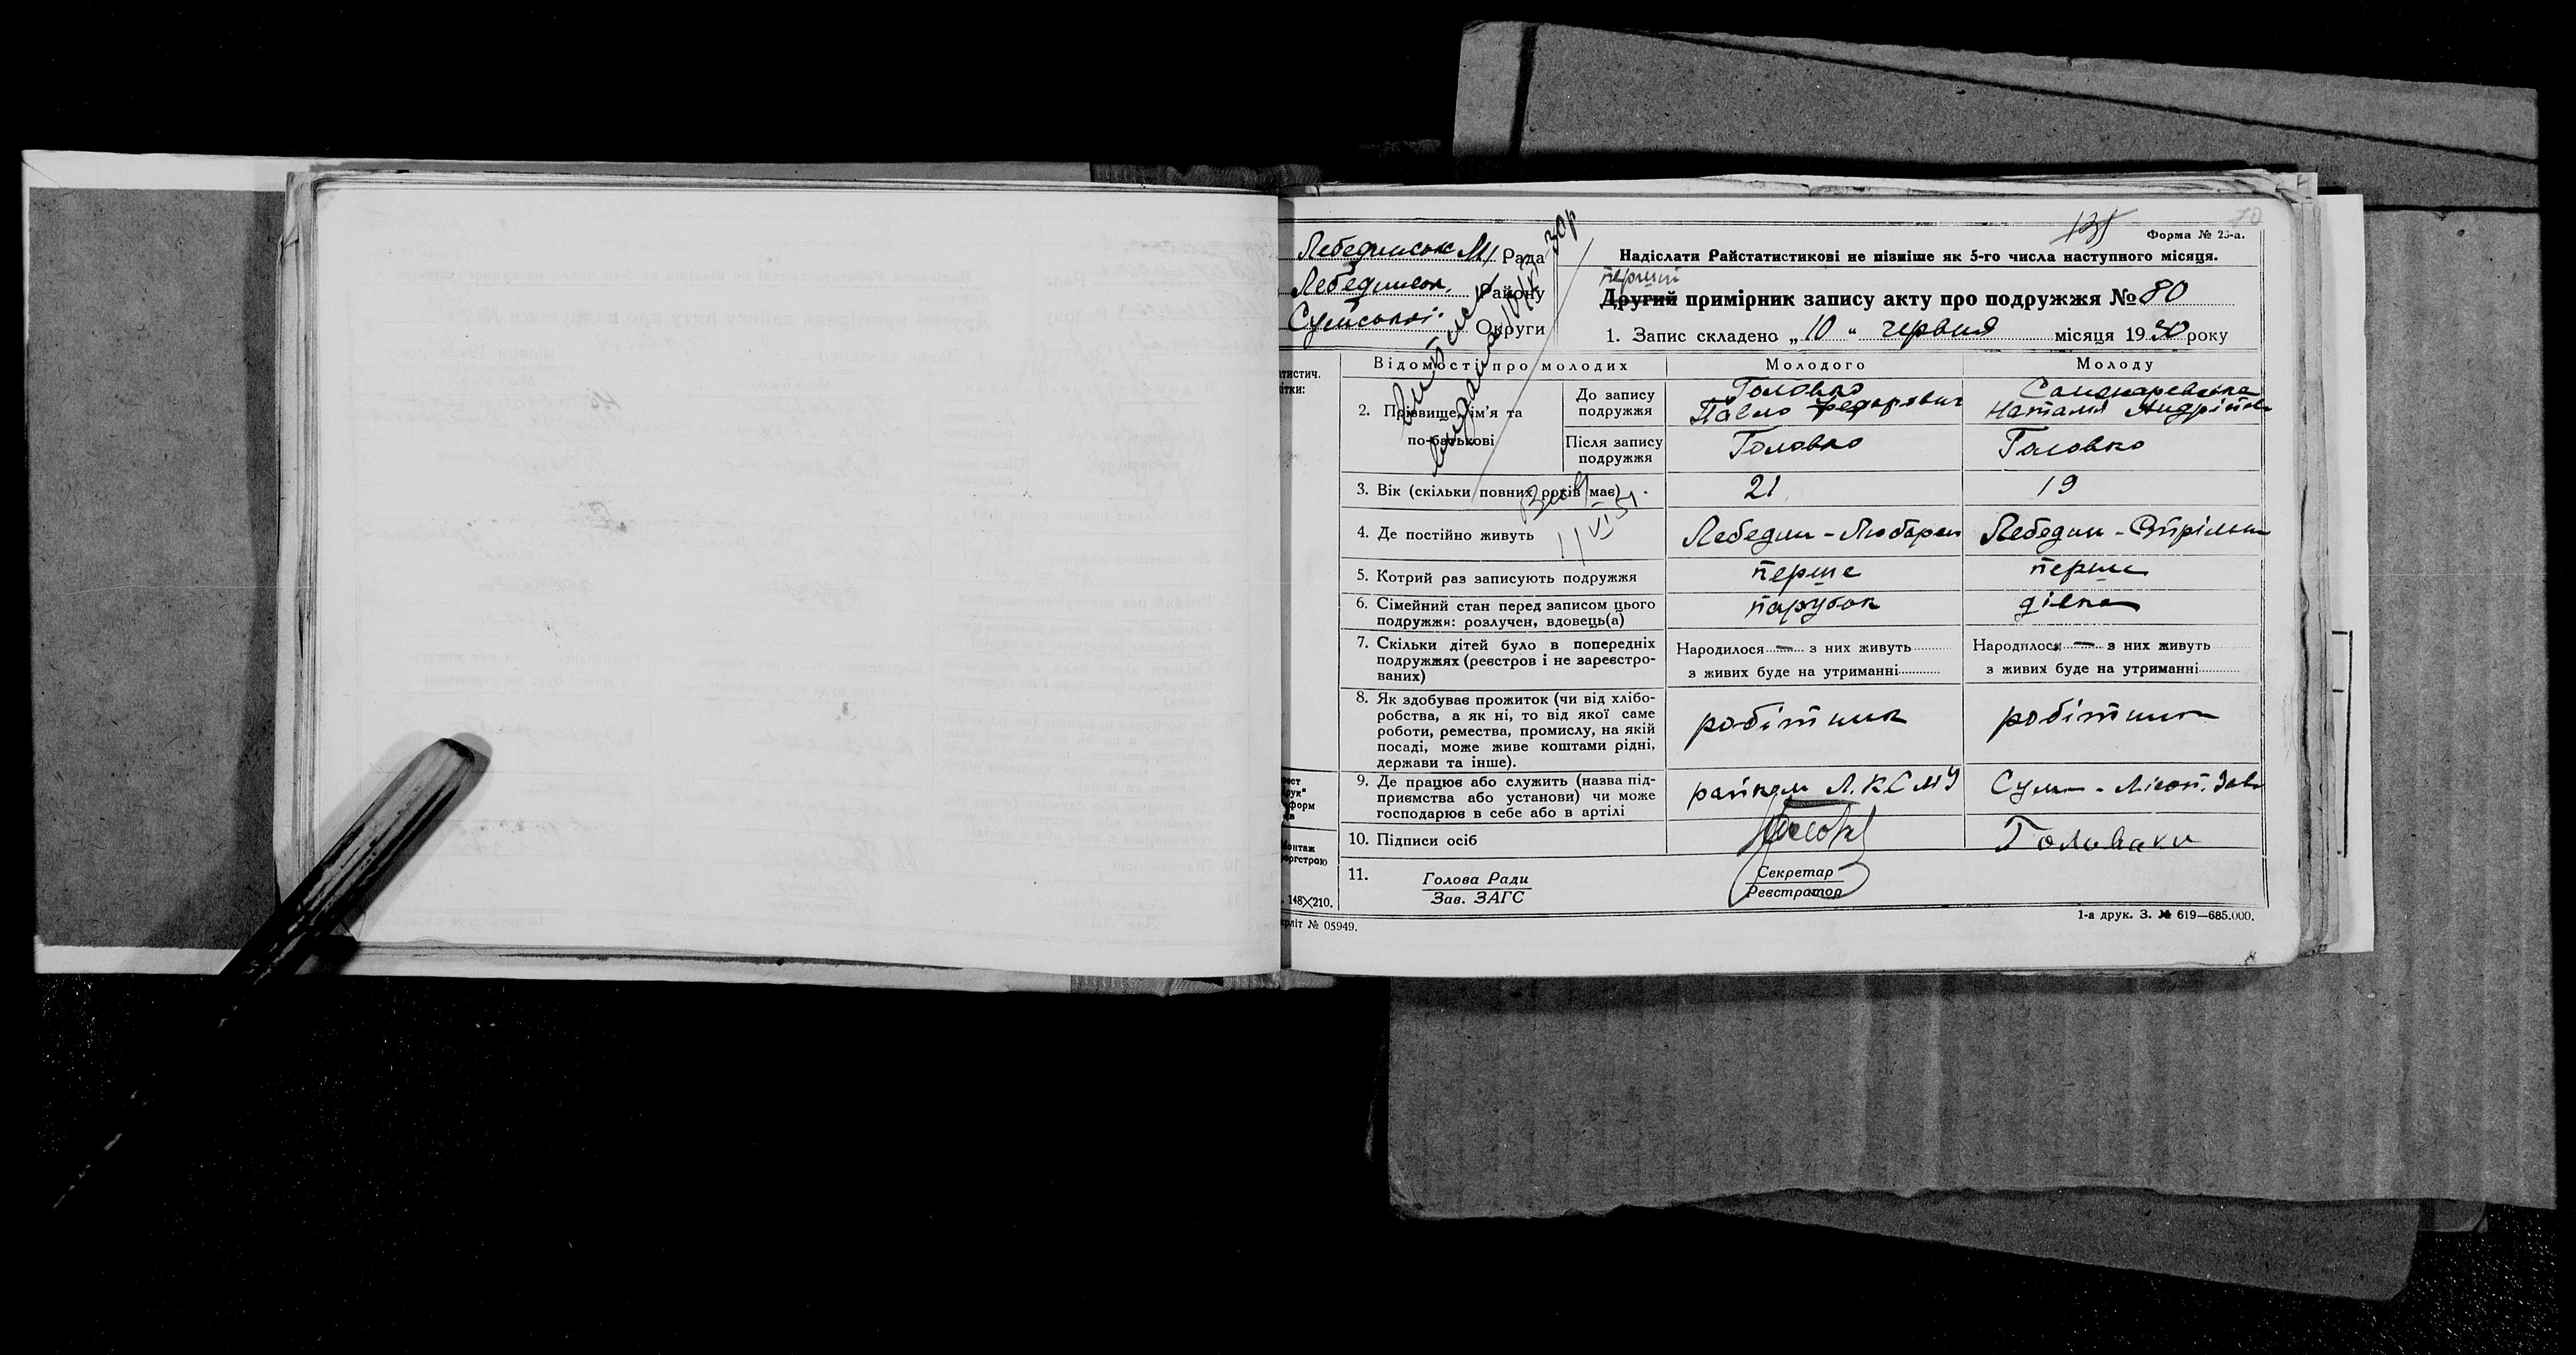 Форма № 23-а.
Лебединськ М/Рада
Лебединськ. Району
Сумської Округи
Надіслати Райстатистикові не пізніше як 5-го числа наступного місяця.
перший
Другий примірник запису акту про подружжя № 80
1. Запис складено „10" червня місяця 1930 року
Відомості про молодих
Молодого
Молоду
2. Прізвище, ім'я та по-батькові
До запису подружжя
Головко
Павло Федорович
Наталія Андріївна
Після запису подружжя
Головко
Головко
3. Вік (скільки повних років має)
21
19
4. Де постійно живуть
Лебедин -
Лебедин -
5. Котрий раз записують подружжя
перше
перше
6. Сімейний стан перед записом цього
подружжя: розлучен, вдовець(а)
парубок
дівка
7. Скільки дітей було в попередніх
подружжях (реєстров і не зареєстро-
ваних)
Народилося — з них живуть
з живих буде на утриманні
Народилося — з них живуть
з живих буде на утриманні
8. Як здобуває прожиток (чи від хлібо-
робства, а як ні, то від якої саме
роботи, ремества, промислу, на якій
посаді, може живе коштами рідні,
держави та інше).
робітник
робітниця
9. Де працює або служить (назва під-
приємства або установи) чи може
господарює в себе або в артілі
райком Л.К.С.М.У
10. Підписи осіб
11.
Голова Ради
Зав. ЗАГС
Секретар
Реєстратор
148×210.
№ 05949.
1-а друк. З. № 619—685.000.